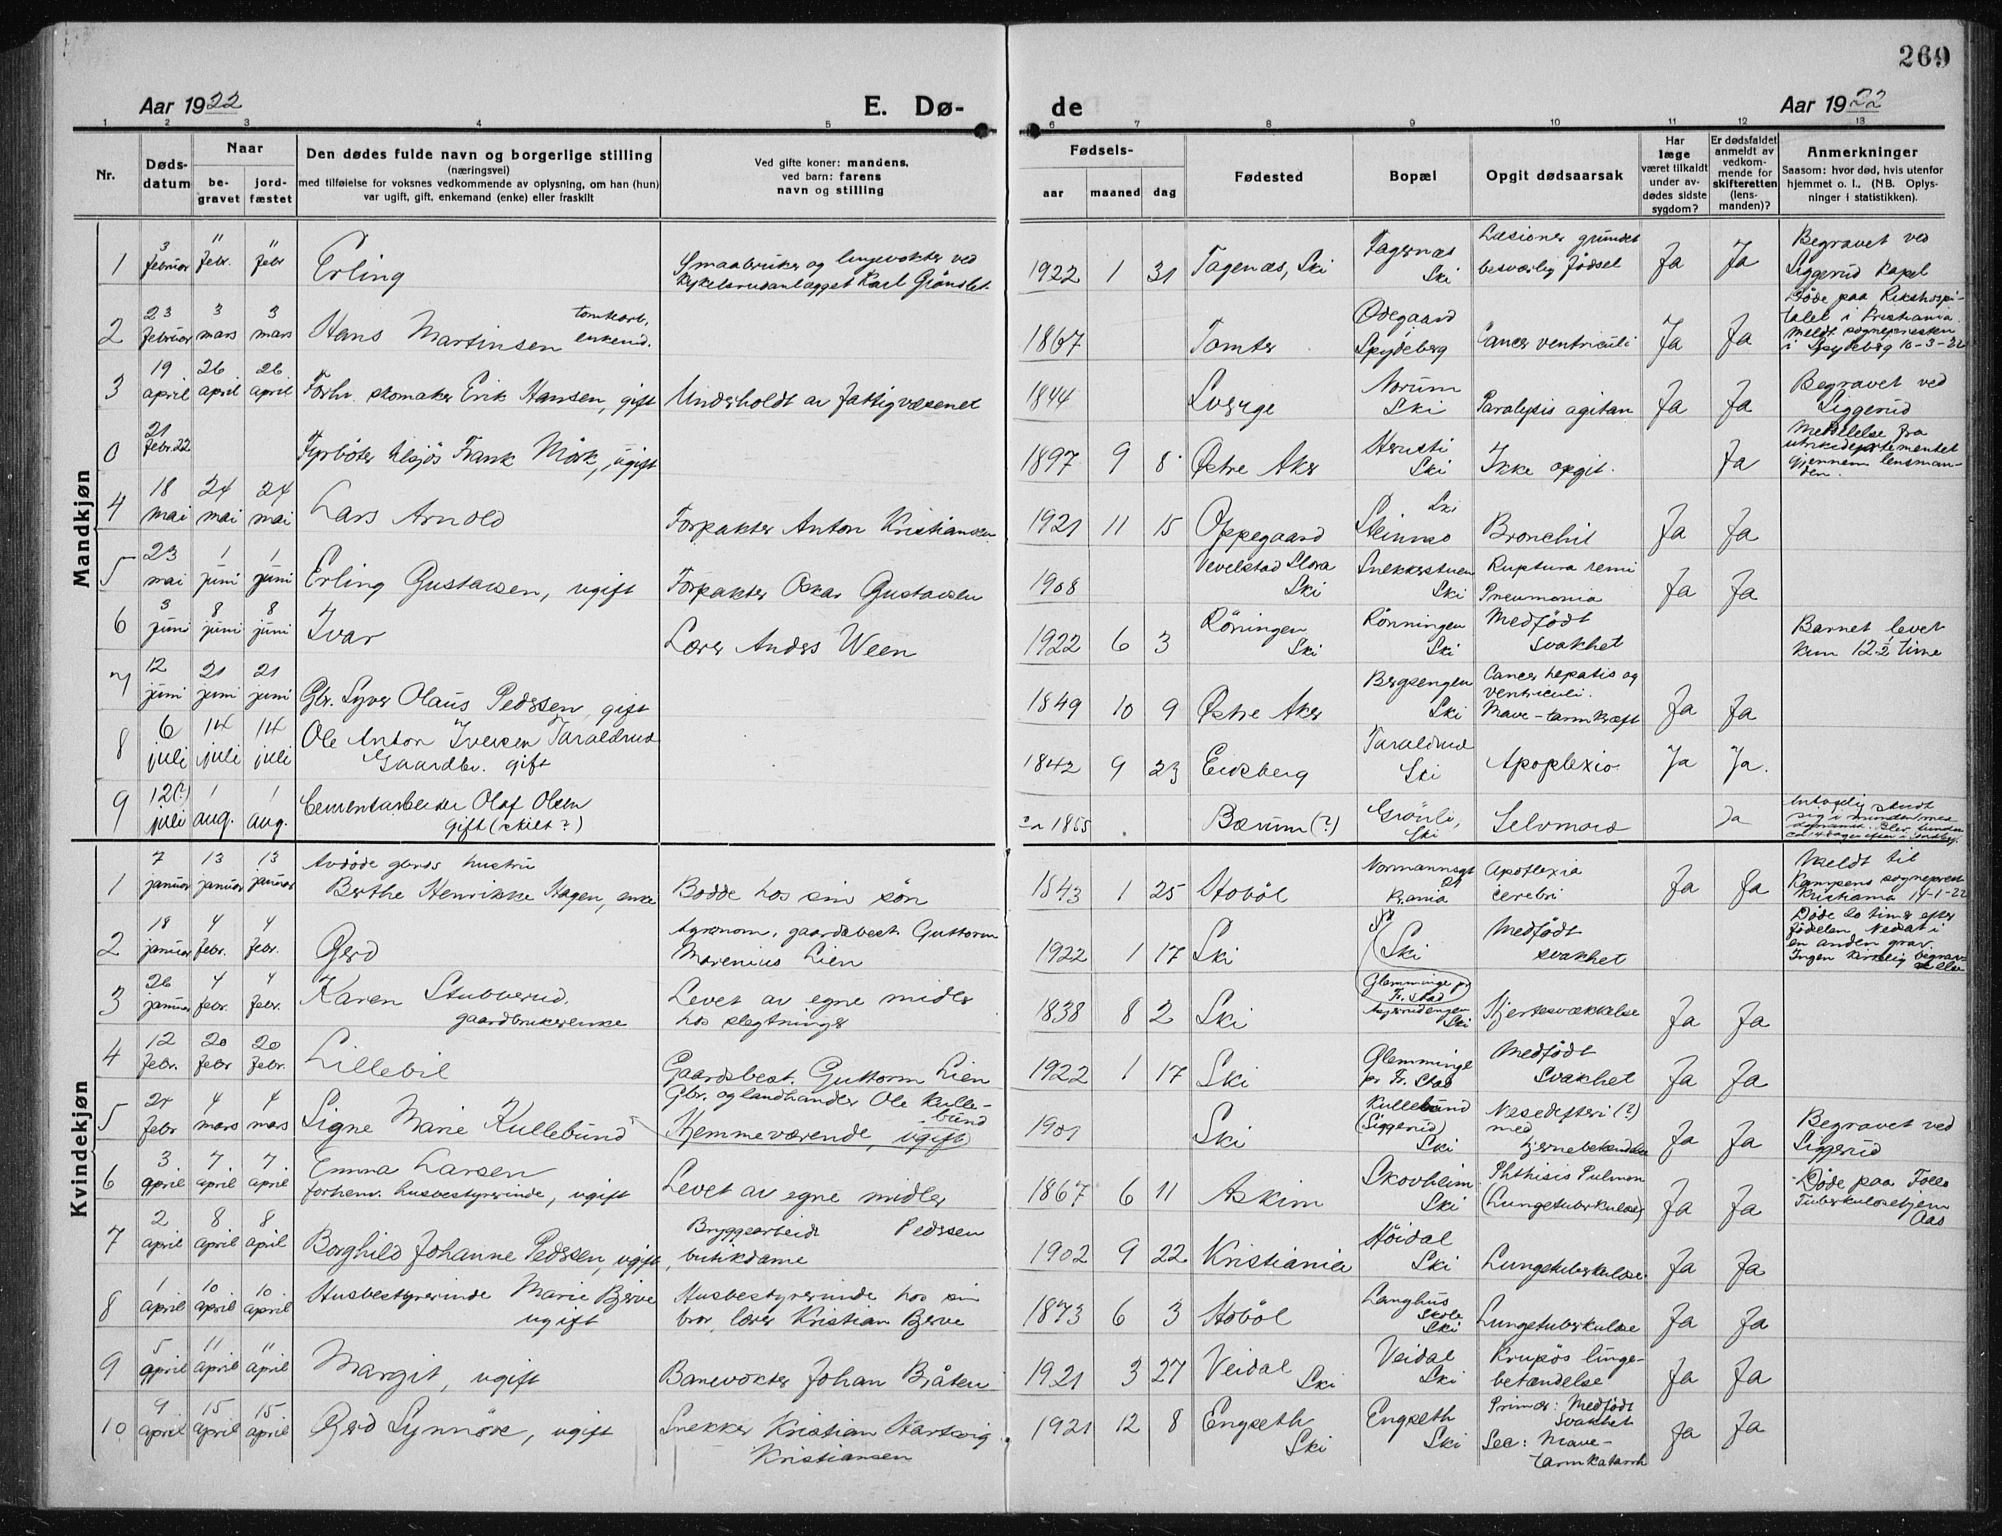 269
Aar 1922
E. Dø-
de
Aar 1922
1 2 3 4 5 6 7 8 9 10 11 12 13
Nr.
Døds-
datum
Naar
be-
gravet
jord-
fæstet
Den dødes fulde navn og borgerlige stilling
(næringsvei)
med tilføielse for voksnes vedkommende av oplysning, om han (hun)
var ugift, gift, enkemand (enke) eller fraskilt
Ved gifte koner: mandens,
ved barn: farens
navn og stilling
Fødsels-
aar
maaned
dag
Fødested
Bopæl
Opgit dødsaarsak
Har
læge
været tilkaldt
under av-
dødes sidste
sygdom?
Er dødsfaldet
anmeldt av
vedkom-
mende for
skifteretten
(lens-
manden)?
Anmerkninger
Saasom: hvor død, hvis utenfor
hjemmet o. l., (NB. Oplys-
ninger i statistikken).
Mandkjøn
1 3 februar 11 febr. 11 febr Erling Smaabruker og linjevokter ved
Kykelsrudanlægget Karl Grändlet 1922 1 31 Tagenæs, Ski Fagernæs Ski Læsioner grundet
besværlig fødsel Ja Ja Begravet ved
Siggerud kapel
2 23 februar 3 mars 3 mars Hans Martinsen tomtearb. enkem. 1867 Tomter Ødegaard
Spydeberg Cancer ventriculi Ja Ja Døde paa Rikshospi-
talet i Kristiania.
Meldt sognepresten
i Spydeberg 10-3-22
3 19 april 26 april 26 april Forhv. skomaker Erik Hansen, gift Underholdt av fattigvæsenet 1844 Sverge Norum
Ski Paralysis agitan Ja Ja Begravet ved
Siggerud
0 21 febr. 22 Fyrbøter tilsjøs Frank Mörk, ugift 1897 9 8 Østre Aker Ski Ikke opgit. Ja Meddelelse fra
utriksdepartementet
gjennem lensman-
den.
4 18 mai 24 mai 24 mai Lars Arnold Forpakter Anton Kristiansen 1921 11 15 Oppegaard Ski Bronchit Ja Ja
5 23 mai 1 juni 1 juni Erling Gustavsen, ugift Forpakter Oskar Gustavsen 1908 Vevelstad Stora
Ski Snekkerstuen
Ski Ruptura
Pneumonia Ja Ja
6 3 juni 8 juni 8 juni Ivar Lærer Anders Ween 1922 6 3 Röningen
Ski Rönningen
Ski Medfödt
svakhet Barnet levet
kun 12½ time
7 12 juni 21 juni 21 juni Gbr. Syver Olaus Pedersen, gift 1849 10 9 Østre Aker Bergsengen
Ski Cancer hepatis og
ventriculi.
Mave-tarmkræft Ja Ja
8 6 juli 14 juli 14 juli Ole Anton Iversen Taraldrud
Gaardbr. gift 1842 9 23 Eidsberg Taraldrud
Ski Apoplexio Ja Ja.
9 12(?) juli 1 aug. 1 aug. Cementarbeider Olaf Olsen
Gift (skilt?) 1855 Bærum (?) Grönli,
Ski Selvmord Ja
Kvindekjøn
1 7 januar 13 januar 13 januar Avdöde gbrds hustru
Berthe Henrikke Hagen, enke Bodde hos sin sön 1843 1 25 Hobøl Normannsgt
Kr.ania Apoplexia
cerebri Ja Ja Meldt til
Kampens sogneprest
Kristiania 14-1-22
2 18 januar 4 febr. 4 febr. Gerd Agronom, gaardsbest. Guttorm
Marenius Lien 1922 1 17 Ski Ski Medfödt
svakhet Døde 20 timer efter
födselen. Nedsat i
en anden grav.
Ingen kirkelig begrav-
else
3 26 januar 4 febr. 4 febr. Karen Stubberud.
gaardbrukerenke Levet av egne midler
hos slegtninger 1838 8 2 Ski Glemminge pr
Fr. stad
Ski Hjertesvækkelse Ja Ja
4 12 febr. 20 febr 20 febr. Lillebil Gaardsbest. Guttorm Lien 1922 1 17 Ski Glemminge
pr Fr. stad Medfödt
svakhet Ja Ja
5 24 febr 4 mars 4 mars Signe Marie Kullebund Gbr. og landhandler Ole Kulle-
bund
Hjemmeværende, ugift 1901 Ski Kullebund
(Siggerud)
Ski Næsedifteri (?)
med Ja Ja Begravet ved
Siggerud
6 3 april 7 april 7 april Emma Larsen
forhenv. husbestyrerinde, ugift Levet av egne midler 1867 6 11 Askim Skovheim
Ski Phthisis Pulmon
(Lungetuberkulose) Ja Ja Døde paa Follo
Tuberkulosehjem
Aas
7 2 april 8 april 8 april Borghild Johanne Pedersen, ugift, Bryggearbeid Pedersen
butikdame 1902 9 22 Kristiania Höidal
Ski Lungetuberkulose Ja Ja
8 1 april 10 april 10 april Husbestyrerinde Marie Bjerve
ugift Husbestyrerinde hos sin
bror, lærer Kristian Bjerve 1873 6 3 Hobøl Langhus
skole
Ski Lungetuberkulose Ja Ja
9 5 april 11 april 11 april Margit, ugift Banevokter Johan Bråten 1921 3 27 Veidal
Ski Veidal
Ski Krupös lunge-
betændelse Ja Ja
10 9 april 15 april 15 april Gerd Synnöve, ugift Snekker Kristian Hartvig
Kristiansen 1921 12 8 Engseth
Ski Engseth
Ski Primær: Medfödt
svakhet
Sec: Mave-
tarmkatarrh Ja Ja